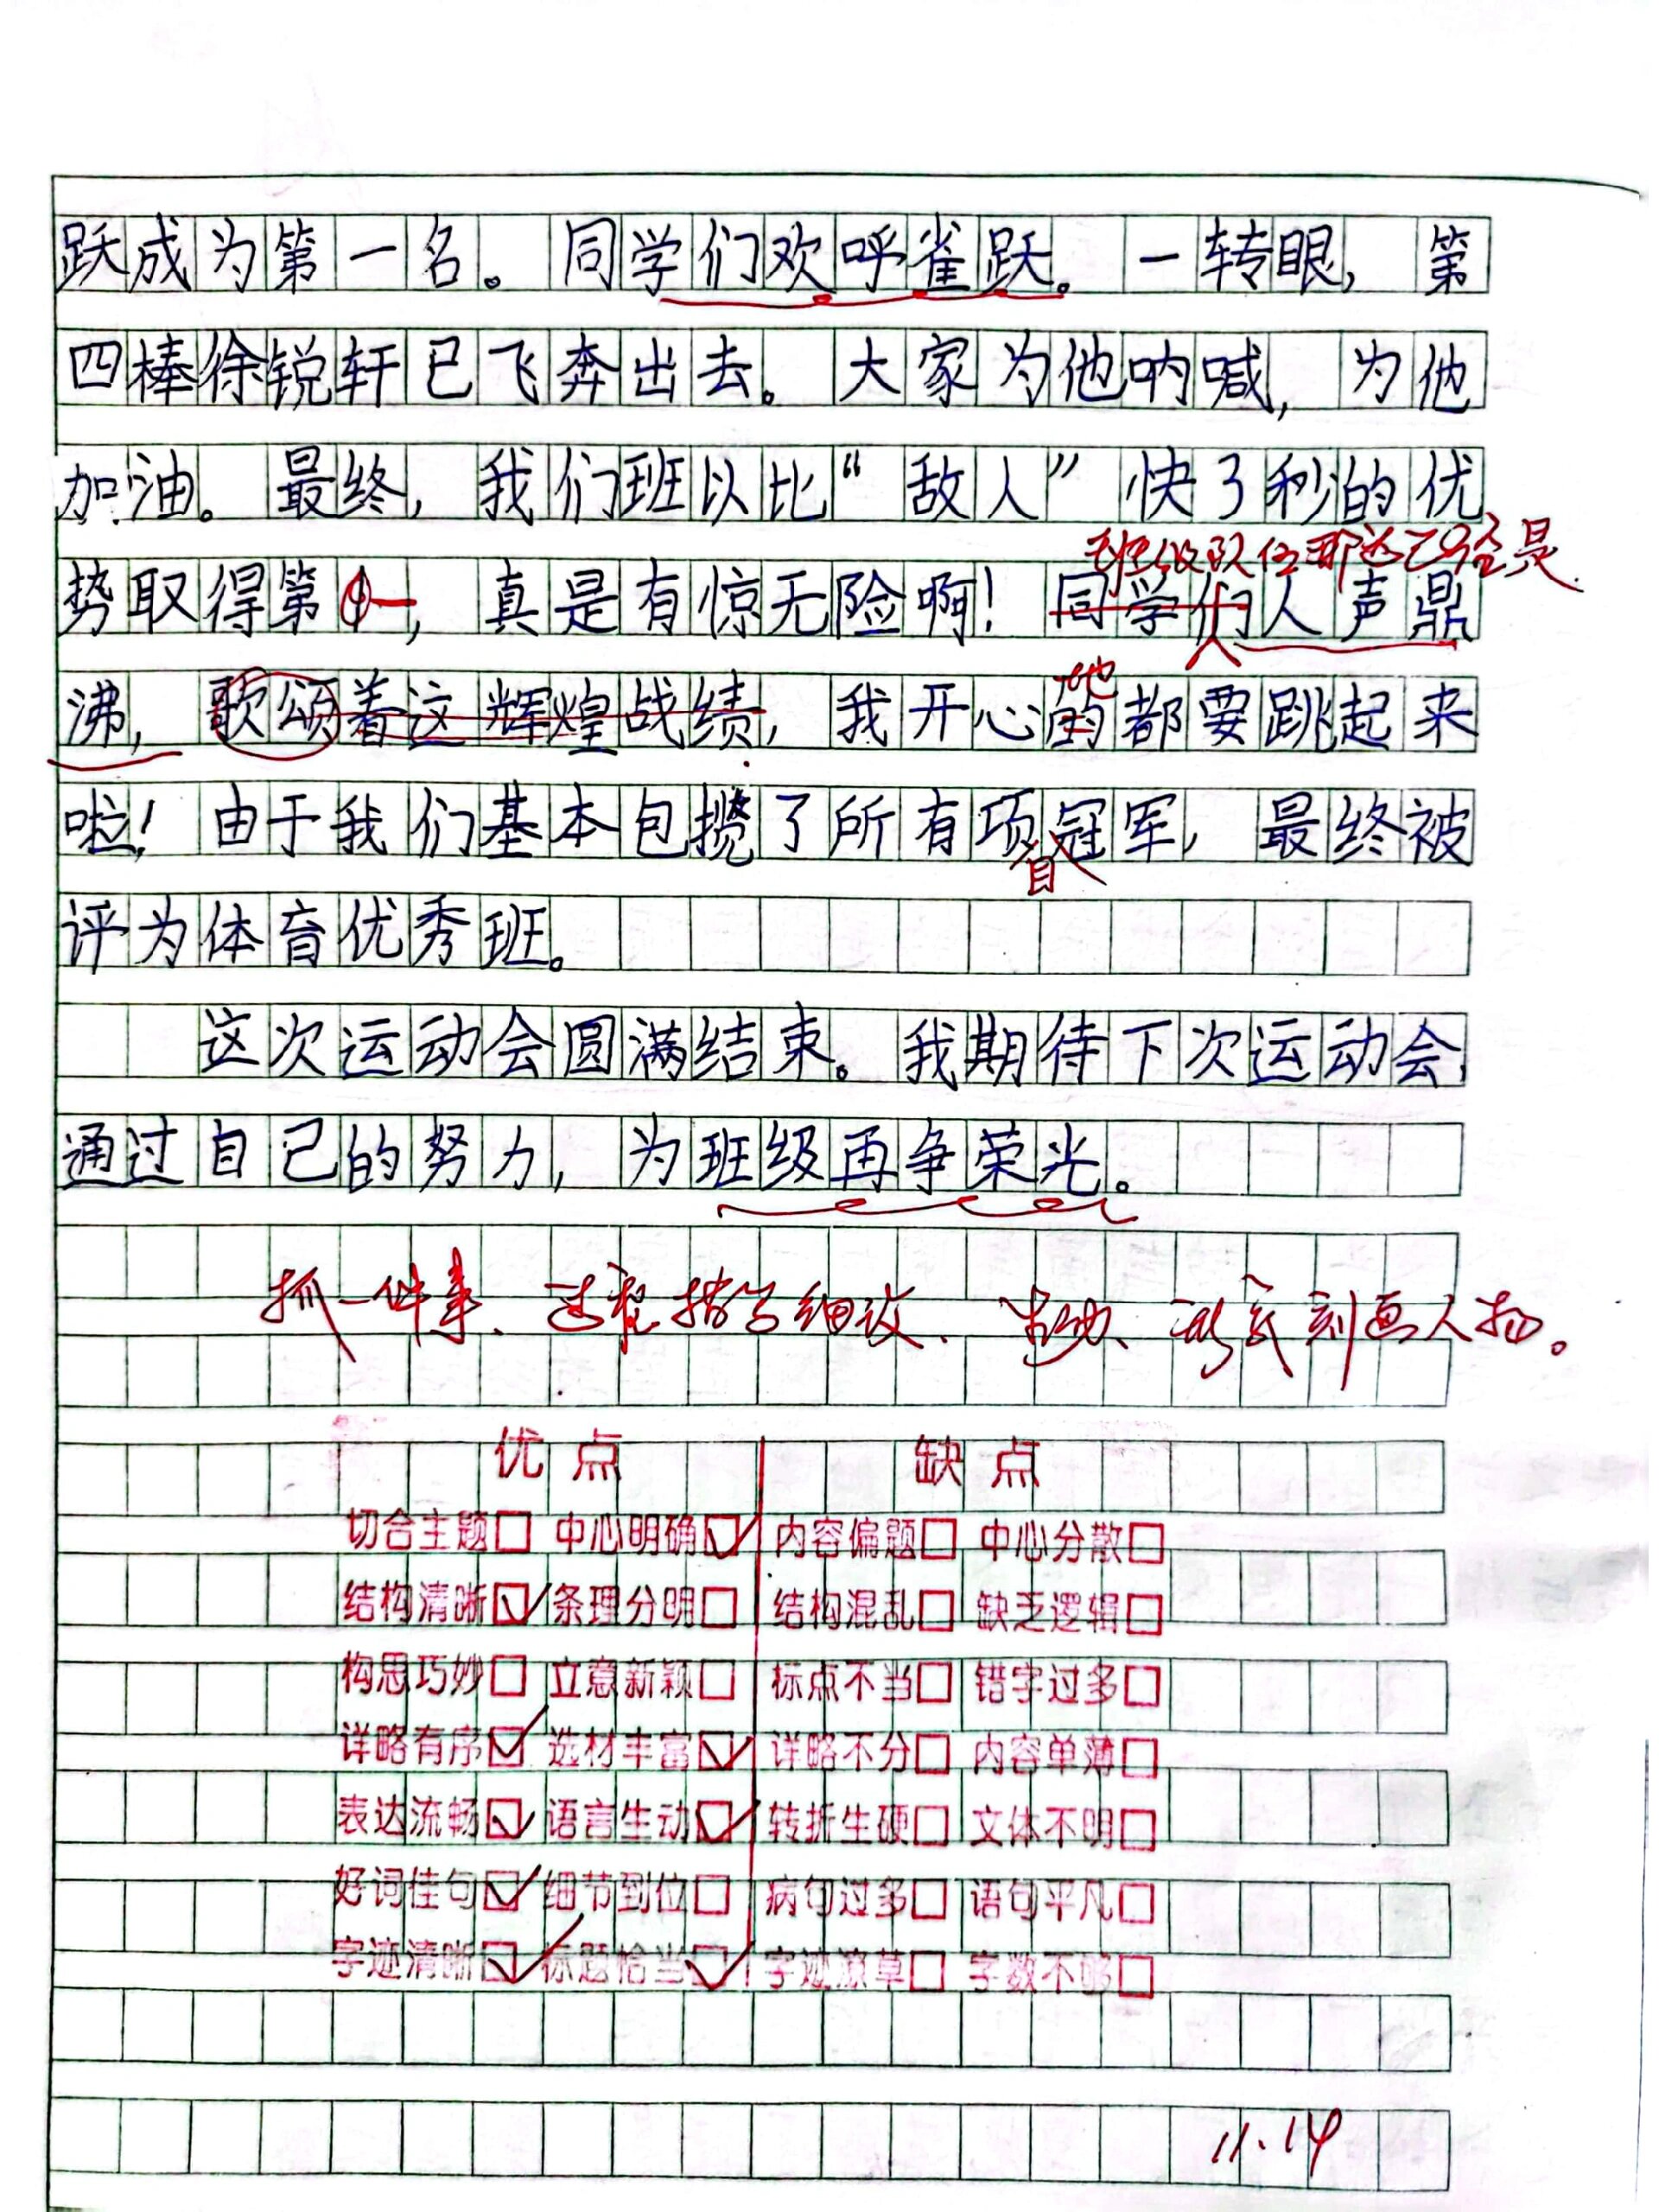 跃成为第一名。同学们欢呼雀跃。一转眼，第
四棒徐锐轩已飞奔出去。大家为他呐喊，为他
加油。最终，我们班以比“敌人”快了秒的优
班级队伍那边已经是
势取得第一，真是有惊无险啊！同学们人声鼎
沸，歌颂着这辉煌战绩，我开心的都要跳起来
地
啦！由于我们基本包揽了所有项冠军，最终被
目
评为体育优秀班。
这次运动会圆满结束。我期待下次运动会，
通过自己的努力，为班级再争荣光。
抓一件事、过程描写细致、生动、形式刻画人物。
优点 缺点
切合主题 中心明确 内容偏题 中心分散
结构清晰 条理分明 结构混乱 缺乏逻辑
构思巧妙 立意新颖 标点不当 错字过多
详略有序 选材丰富 详略不分 内容单薄
表达流畅 语言生动 转折生硬 文体不明
好词佳句 细节到位 病句过多 语句平凡
字迹清晰 标题恰当 字迹潦草 字数不够
11.14